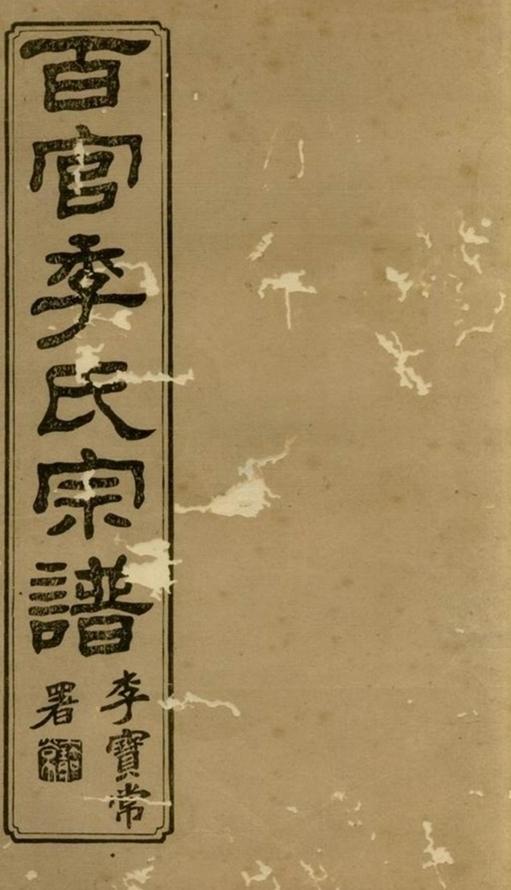 百官季氏宗譜
李寶常
署